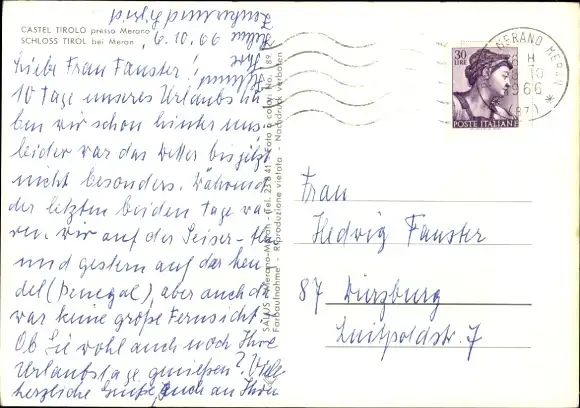 CASTEL TIROLO presso Merano
SCHLOSS TIROL bei Meran
9.10.66
Liebe Frau Fauster!
10 Tage unseres Urlaubs ha-
ben wir schon hinter uns,
leider war das Wetter bis jetzt
nicht besonders. Während
der letzten beiden Tage wa-
ren wir auf der Seiser-Alm
und gestern auf der
(Penegal), aber auch da
war keine große Fernsicht.
Ob Sie wohl auch noch Ihre
Urlaubstage genießen? Viele
herzliche Grüße, auch an Ihren
SALUS - Merano-Meran - Tel. 23 8 41 - Foto a color: No. 89
Farbaufnahme - Riproduzione vietata - Nachdruck verboten
30
LIRE
POSTE ITALIANE
MERANO MERAN
10
1966
(87)
Frau
Hedwig Fauster
87 Würzburg
Luitpoldstr. 7